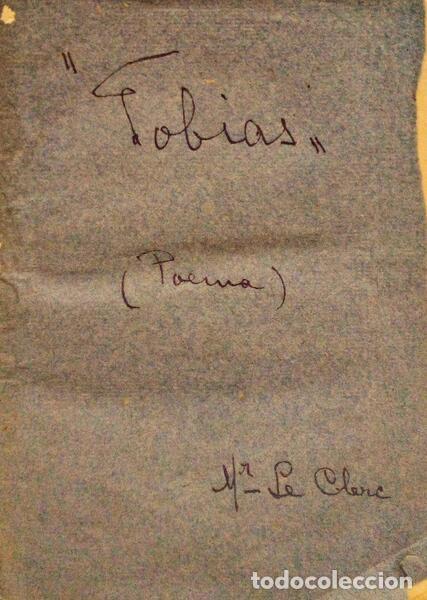 "Tobias"
(Poema)
Mr Le Clerc
todocoleccion